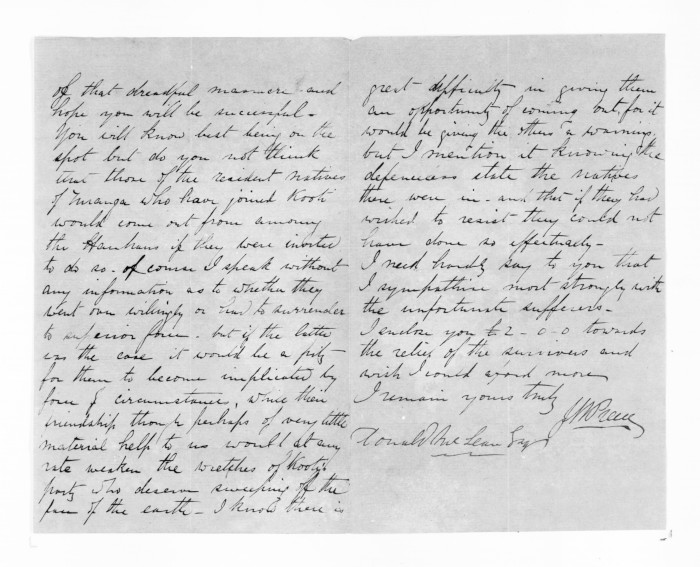 of that dreadful massacre and
hope you will be successful -
You will know best being on the
spot but do you not think
that those of the resident natives
of Turanga who have joined Kooti
would come out from among
the Hauhaus if they were invited
to do so - of course I speak without
any information as to whether they
went over willingly or had to surrender
to superior force - but if the latter
was the case it would be a pity -
for them to become implicated by
force of circumstances, while their
friendship though perhaps of very little
material help to us would at any
rate weaken the wretches of Kooti's
party who deserve sweeping off the
face of the earth - I know there is
great difficulty in giving them
an opportunity of coming out, for it
would be giving the others a warning,
but I mention it knowing the
defenceless state the natives
there were in - and that if they had
wished to resist they could not
have done so effectually -
I need hardly say to you that
I sympathise most strongly with
the unfortunate sufferers -
I enclose you £2-0-0 towards
the relief of the survivors and
wish I could afford more
I remain yours truly
Donald McLean Esq